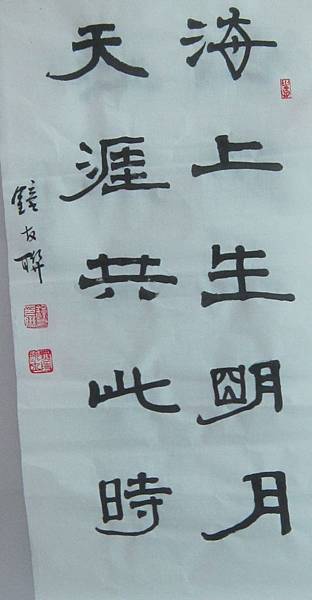 海上生明月
天涯共此時
鏡友聯